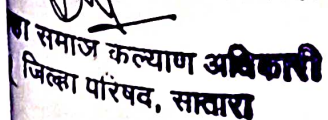 हा समाज कल्याण अधिकारी
जिल्हा परिषद, सातारा